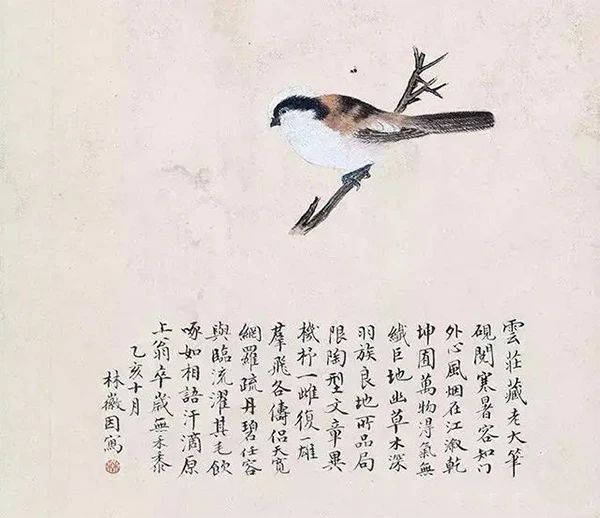 雲莊藏老大筆
硯閱寒暑容知門
外心風烟在江溆乾
坤圍萬物淂氣無
纖巨地幽草木深
羽族良地所品局
限陶型文章異
機杼一雌復一雄
羣飛各儔侶天寬
網羅疏丹碧任容
與臨流濯其毛飲
啄如相語汗滴原
上翁卒歲無禾黍
乙亥十月
林徽因寫